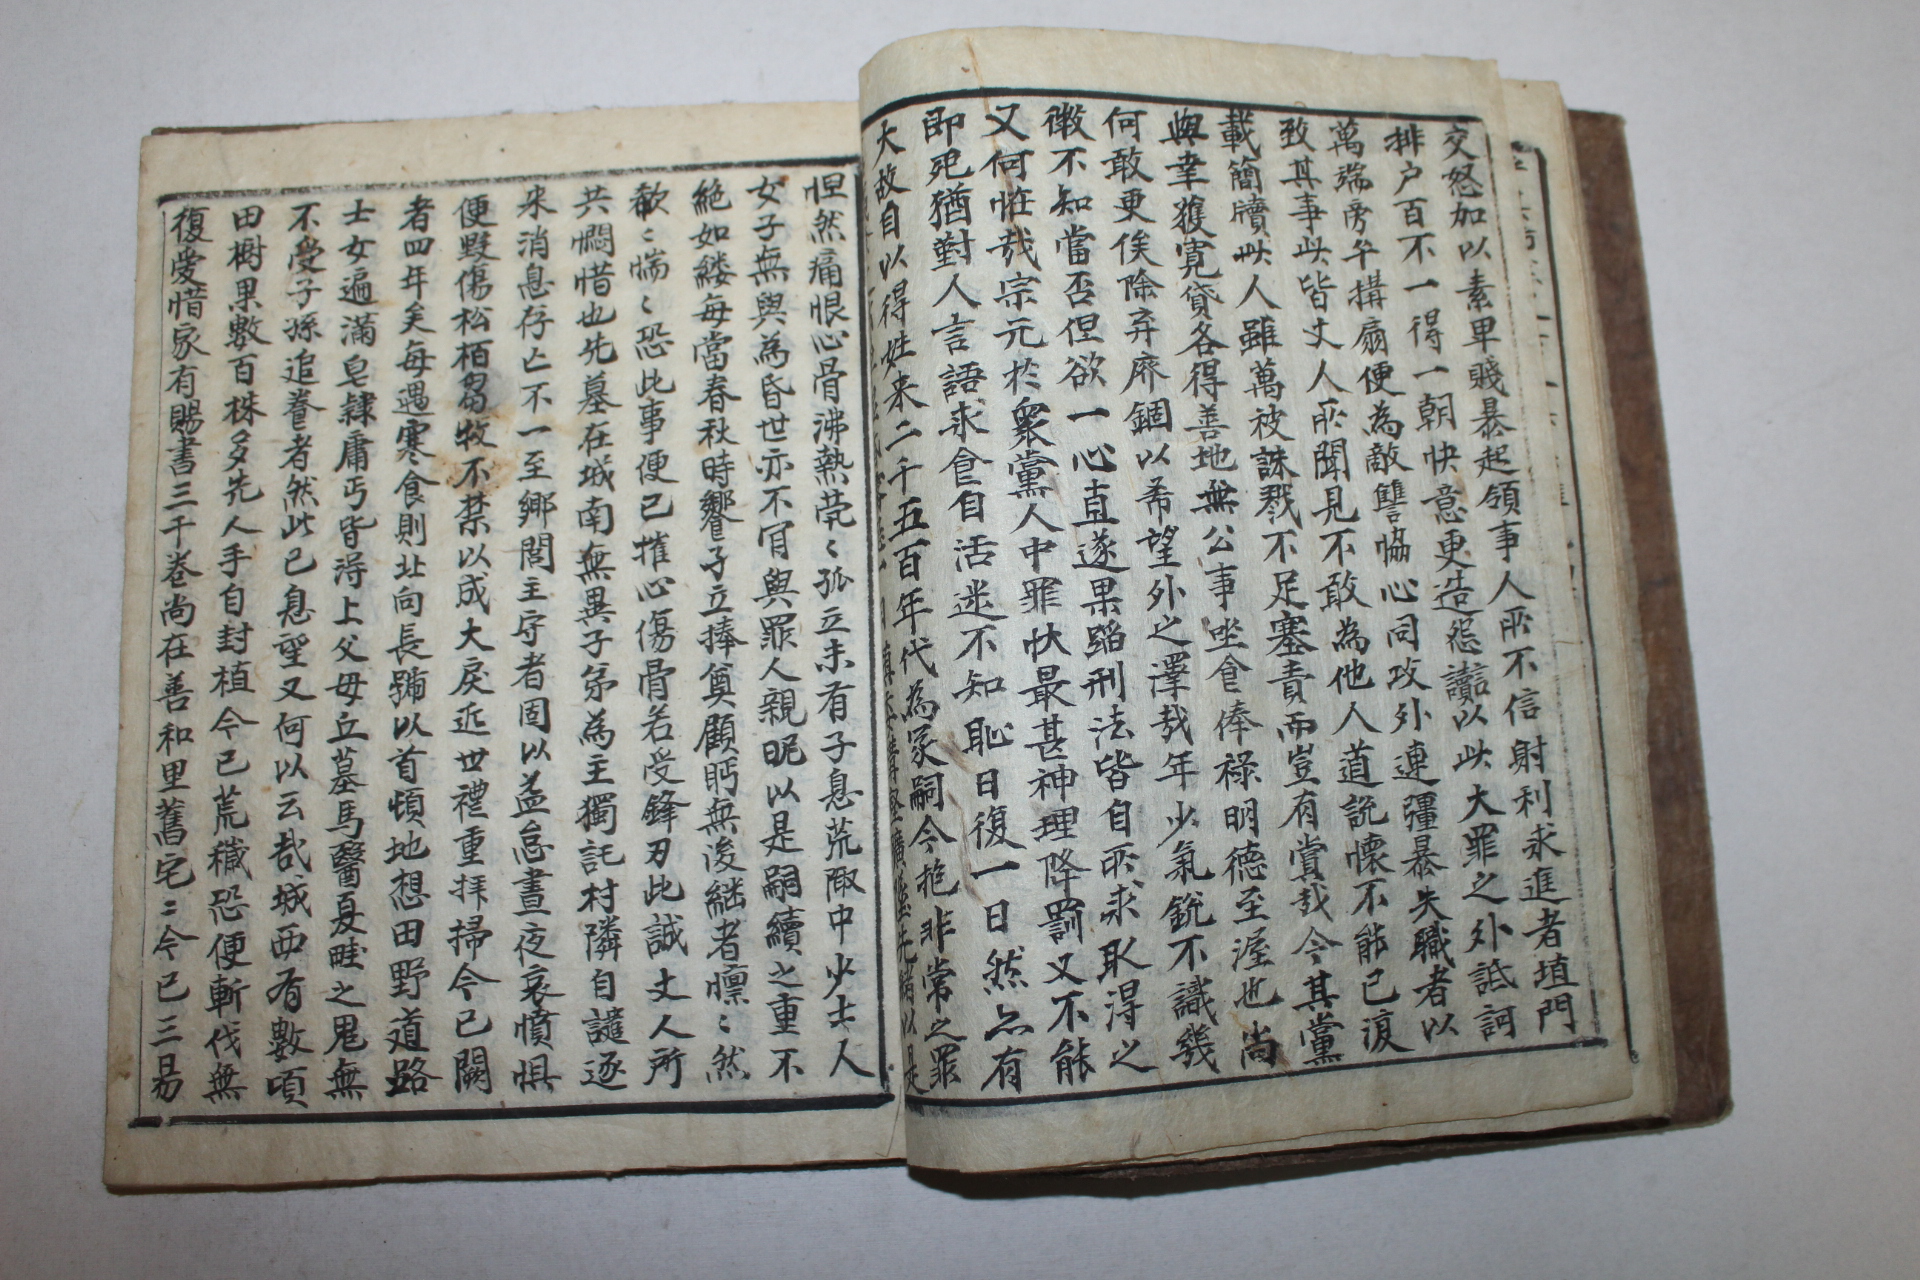 交怒加以素卑賤暴起領事人所不信射利求進者塡門
排户百不一得一朝快意更造怨讟以此大罪之外詆訶
萬端旁午搆扇便為敵讐恊心同攻外連彊暴失職者以
致其事此皆丈人所聞見不敢為他人道說懷不能已復
載簡牘此人雖萬被誅戮不足塞責而豈有賞哉今其黨
與幸獲寛貸各得善地無公事坐食俸祿明德至渥也尚
何敢更俟除弃廢錮以希望外之澤哉年少氣銳不識幾
微不知當否但欲一心直遂果蹈刑法皆自所求取得之
又何恠哉宗元於衆黨人中罪狀最甚神理降罰又不能
即死猶對人言語求食自活迷不知恥日復一日然亦有
大故自以得姓来二千五百年代為冢嗣今抱非常之罪
怛然痛恨心骨沸熱茕〻孤立未有子息荒陬中少士人
女子無與為昏世亦不肎與罪人親昵以是嗣續之重不
絶如縷每當春秋時饗孑立捧奠顧眄無後繼者懔〻然
欷〻惴〻恐此事便已摧心傷骨若受鋒刃此誠丈人所
共憫惜也先墓在城南無異子弟為主獨託村隣自譴逐
来消息存亡不一至鄉閭主守者固以益怠晝夜哀憤惧
便毀傷松栢芻牧不禁以成大戾近世禮重拜掃今已闕
者四年矣每遇寒食則北向長號以首頓地想田野道路
士女遍滿皂隷庸丐皆得上父母丘墓馬醫夏畦之鬼無
不受子孫追養者然此已息望又何以云哉城西有數頃
田樹果數百株多先人手自封植今已荒穢恐便斬伐無
復愛惜家有賜書三千卷尚在善和里舊宅〻今已三易